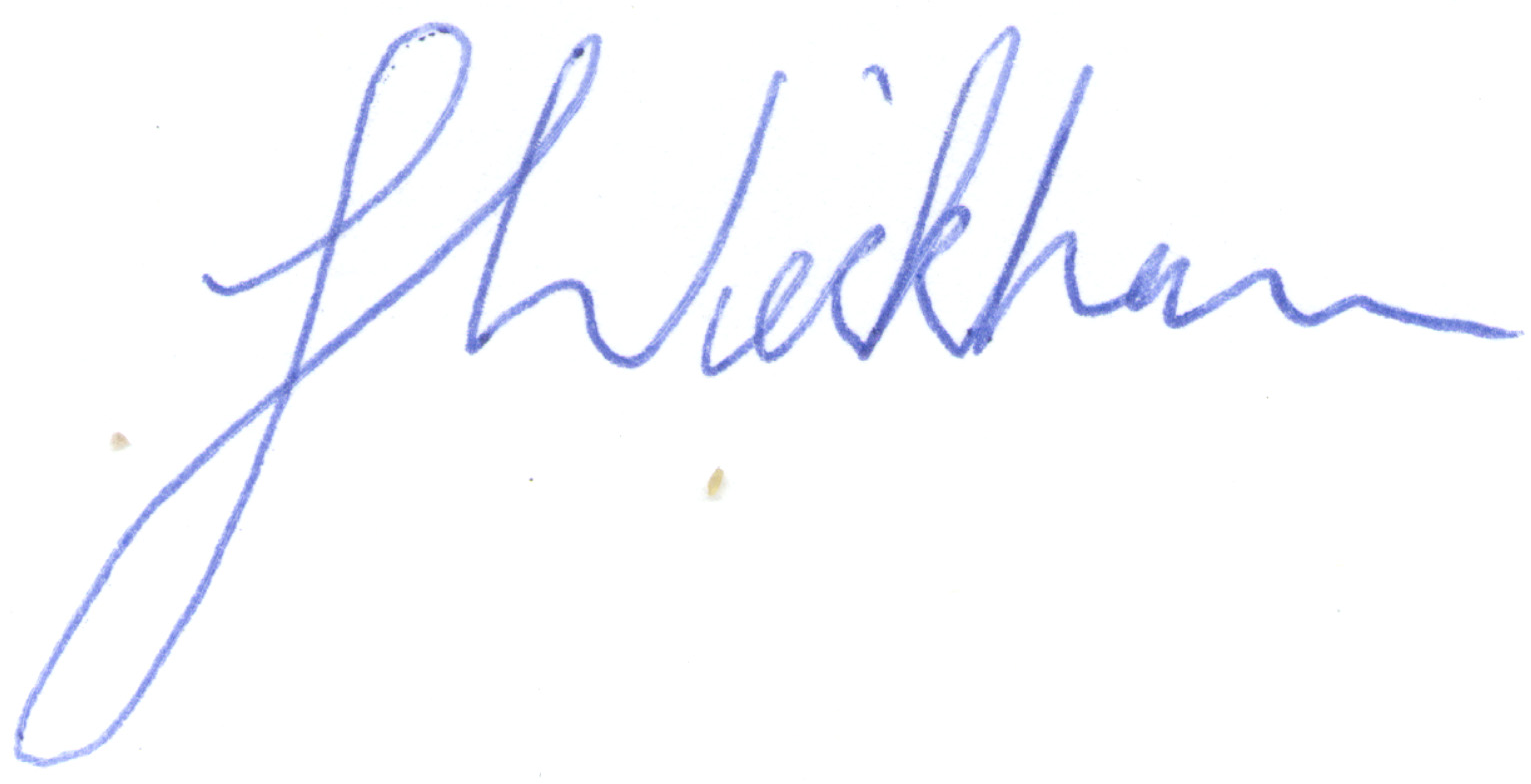 J Wickham